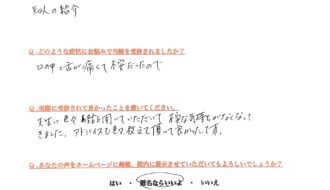 知人の紹介
Q.どのような症状にお悩みで当院を受診されましたか?
口の中と舌が痛くて不安だったので
Q.実際に受診されて良かったことを書いてください。
先生に色々お話を聞いていただいて不安な気持ちがなくなって
きました。アドバイスも色々教えて頂いて良かったです。
Q.あなたの声をホームページに掲載、院内に掲示させていただいてもよろしいでしょうか?
はい ・ 匿名ならいいよ ・ いいえ